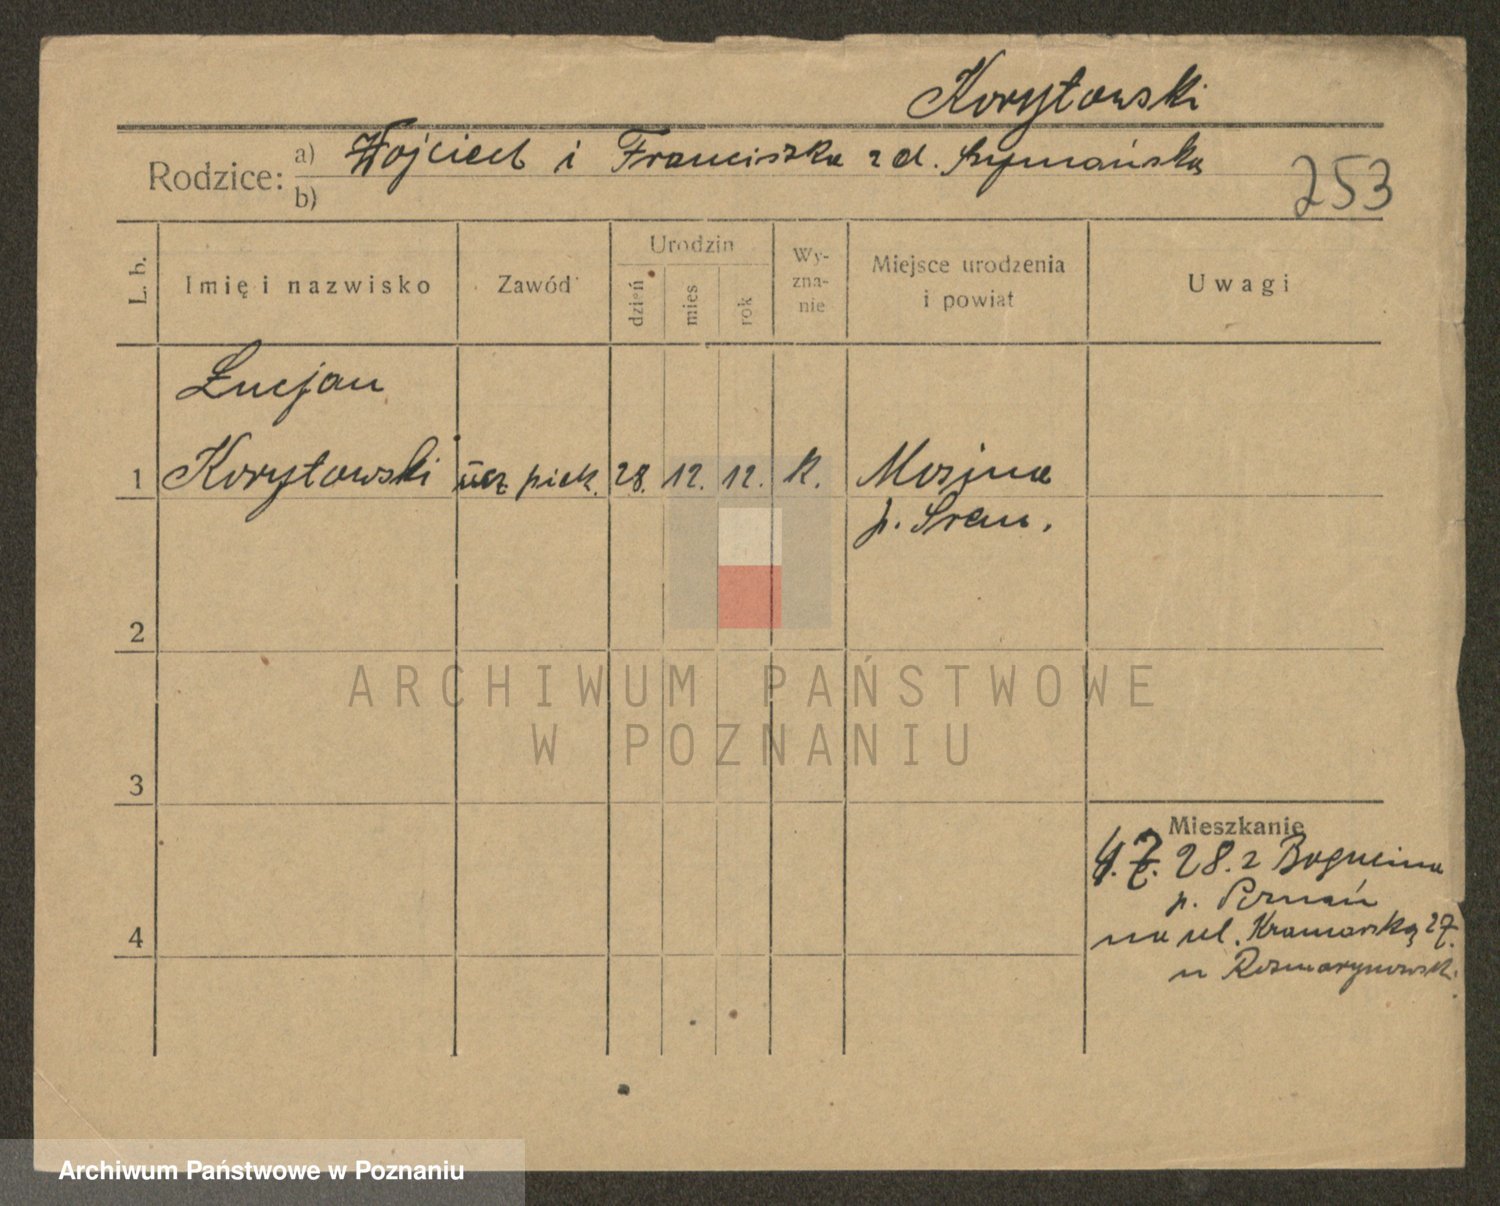 Korytowski
Rodzice: a) Wojciech i Franciszka z d. Szymańska
b)
253
L. b. Imię i nazwisko Zawód Urodzin dzień mies rok Wyznanie Miejsce urodzenia i powiat Uwagi
Łucjan
1 Korytowski ucz piek. 28. 12. 12. k. Mosina
p. Śrem.
2
ARCHIWUM PAŃSTWOWE
W POZNANIU
3
Mieszkanie
4.7.28. z Bogucina
p. Poznań
4 na ul. Kramarską 27.
u Rozmarynowsk.
Archiwum Państwowe w Poznaniu